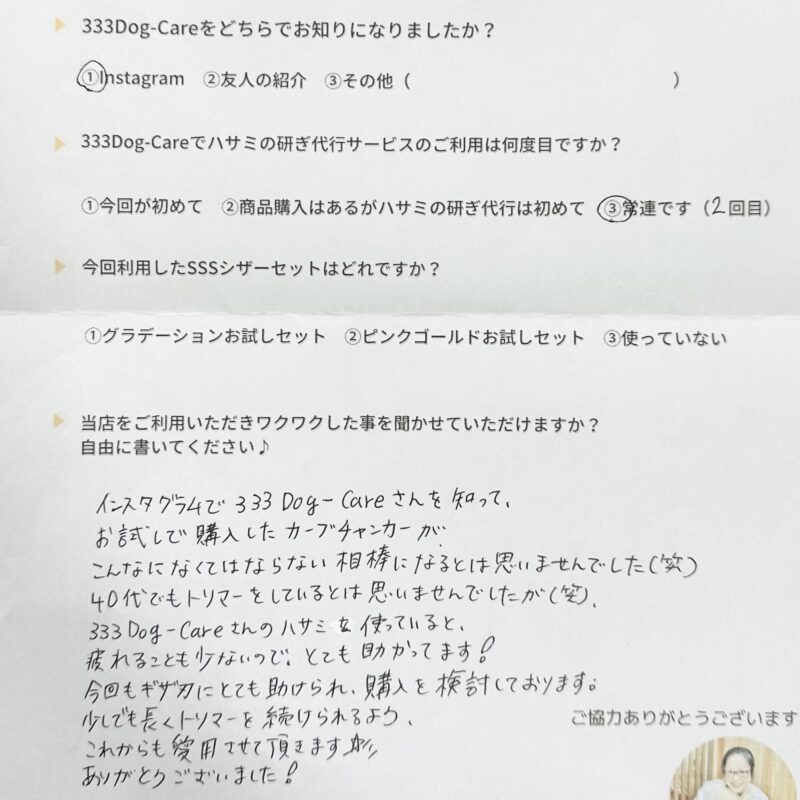 333Dog-Careをどちらでお知りになりましたか？
①Instagram ②友人の紹介 ③その他（ ）
333Dog-Careでハサミの研ぎ代行サービスのご利用は何度目ですか？
①今回が初めて ②商品購入はあるがハサミの研ぎ代行は初めて ③常連です（2回目）
今回利用したSSSシザーセットはどれですか？
①グラデーションお試しセット ②ピンクゴールドお試しセット ③使っていない
当店をご利用いただきワクワクした事を聞かせていただけますか？
自由に書いてください♪
インスタグラムで 333 Dog-Care さんを知って、
お試しで購入したカーブチャンカーが、
こんなになくてはならない相棒になるとは思いませんでした(笑)
40代でもトリマーをしているとは思いませんでしたが(笑)、
333 Dog-Care さんのハサミを使っていると、
疲れることも少ないので、とても助かってます！
今回もギザ刃にとても助けられ、購入を検討しております。
少しでも長くトリマーを続けられるよう、
これからも愛用させて頂きます☆彡
ありがとうございました！
ご協力ありがとうございます